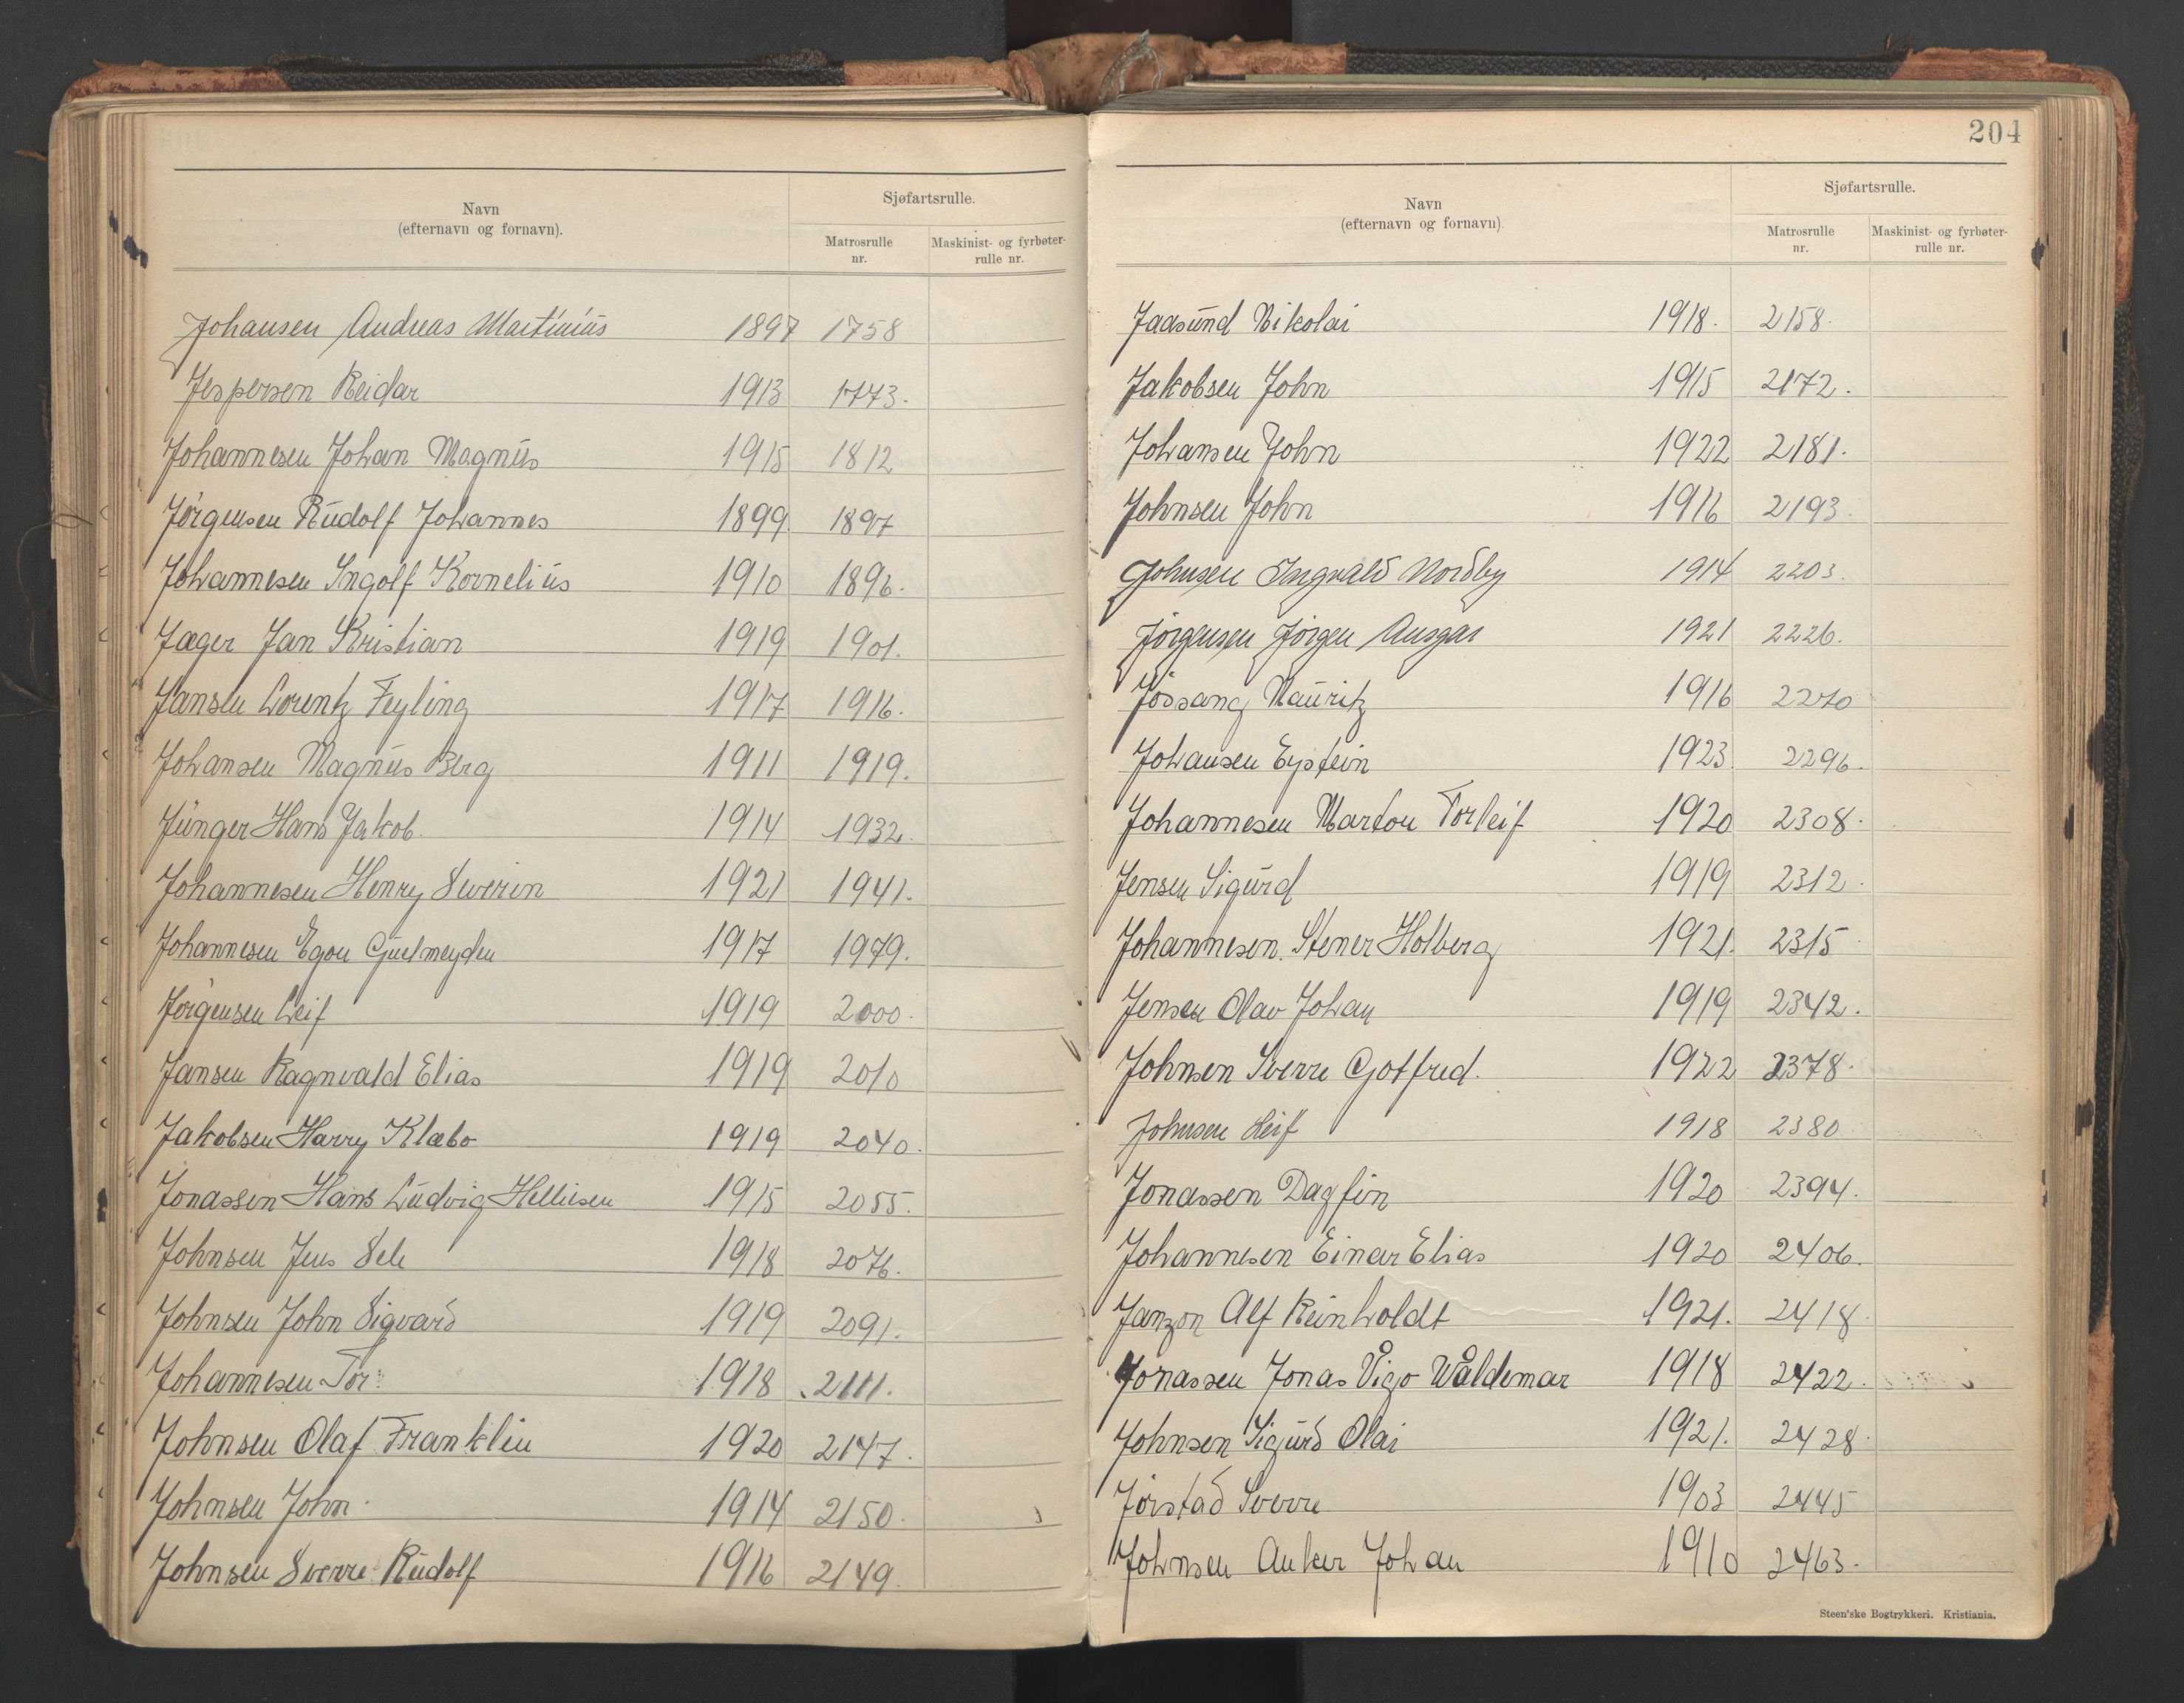 Navn
(efternavn og fornavn).
Sjøfartsrulle.
Matrosrulle
nr.
Maskinist- og fyrbøter-
rulle nr.
Johansen Andreas Martinius 1897 1758
Jespersen Reidar 1913 1773.
Johannesen Johan Magnus 1915 1812
Jørgensen Rudolf Johannes 1899 1897
Johannesen Ingolf Kornelius 1910 1896.
Jæger Jan Kristian 1919 1901.
Jansen Lorentz Feyling 1917 1916.
Johansen Magnus Berg 1911 1919.
Junger Hans Jakob. 1914 1932.
Johannesen Henry Severin 1921 1941.
Johannesen Egon 1917 1979.
Jørgensen Leif 1919 2000.
Jansen Ragnvald Elias 1919 2010
Jakobsen Harry Klæbo 1919 2040.
Jonassen Hans Ludvig Helliesen 1915 2055.
Johnsen Jens Sele 1918 2076.
Johnsen John Sigvard 1919 2091.
Johannesen Tor. 1918 2111.
Johnsen Olaf Franklin 1920 2147.
Johnsen John. 1914 2150.
Johnsen Sverre Rudolf 1916 2149.
204
Navn
(efternavn og fornavn).
Sjøfartsrulle.
Matrosrulle
nr.
Maskinist- og fyrbøter-
rulle nr.
Jaasund Nikolai 1918. 2158.
Jakobsen John 1915 2172.
Johansen John 1922 2181.
Johnsen John 1916 2193.
Johnsen Ingvald Nordby 1914 2203.
Jørgensen Jørgen Ansgar 1921 2226.
Jøssang Mauritz 1916
Johansen Eystein 1923 2296.
Johannesen Marton Torleif 1920 2308.
Jensen Sigurd 1919 2312.
Johannesen. Stener Holberg 1921. 2315.
Jensen Olav Johan 1919 2342.
Johnsen Sverre Gotfred. 1922 2378.
Johnsen Leif 1918 2380
Jonassen Dagfin 1920 2394.
Johannesen Einar Elias 1920 2406.
Janzon Alf Reinholdt 1921. 2418.
Jonassen Jonas Vigo Waldemar 1918 2422.
Johnsen Sigurd Olai 1921. 2428.
Jørstad Sverre 1903 2445
Johnsen Anker Johan 1910 2463.
Steen'ske Bogtrykkeri. Kristiania.